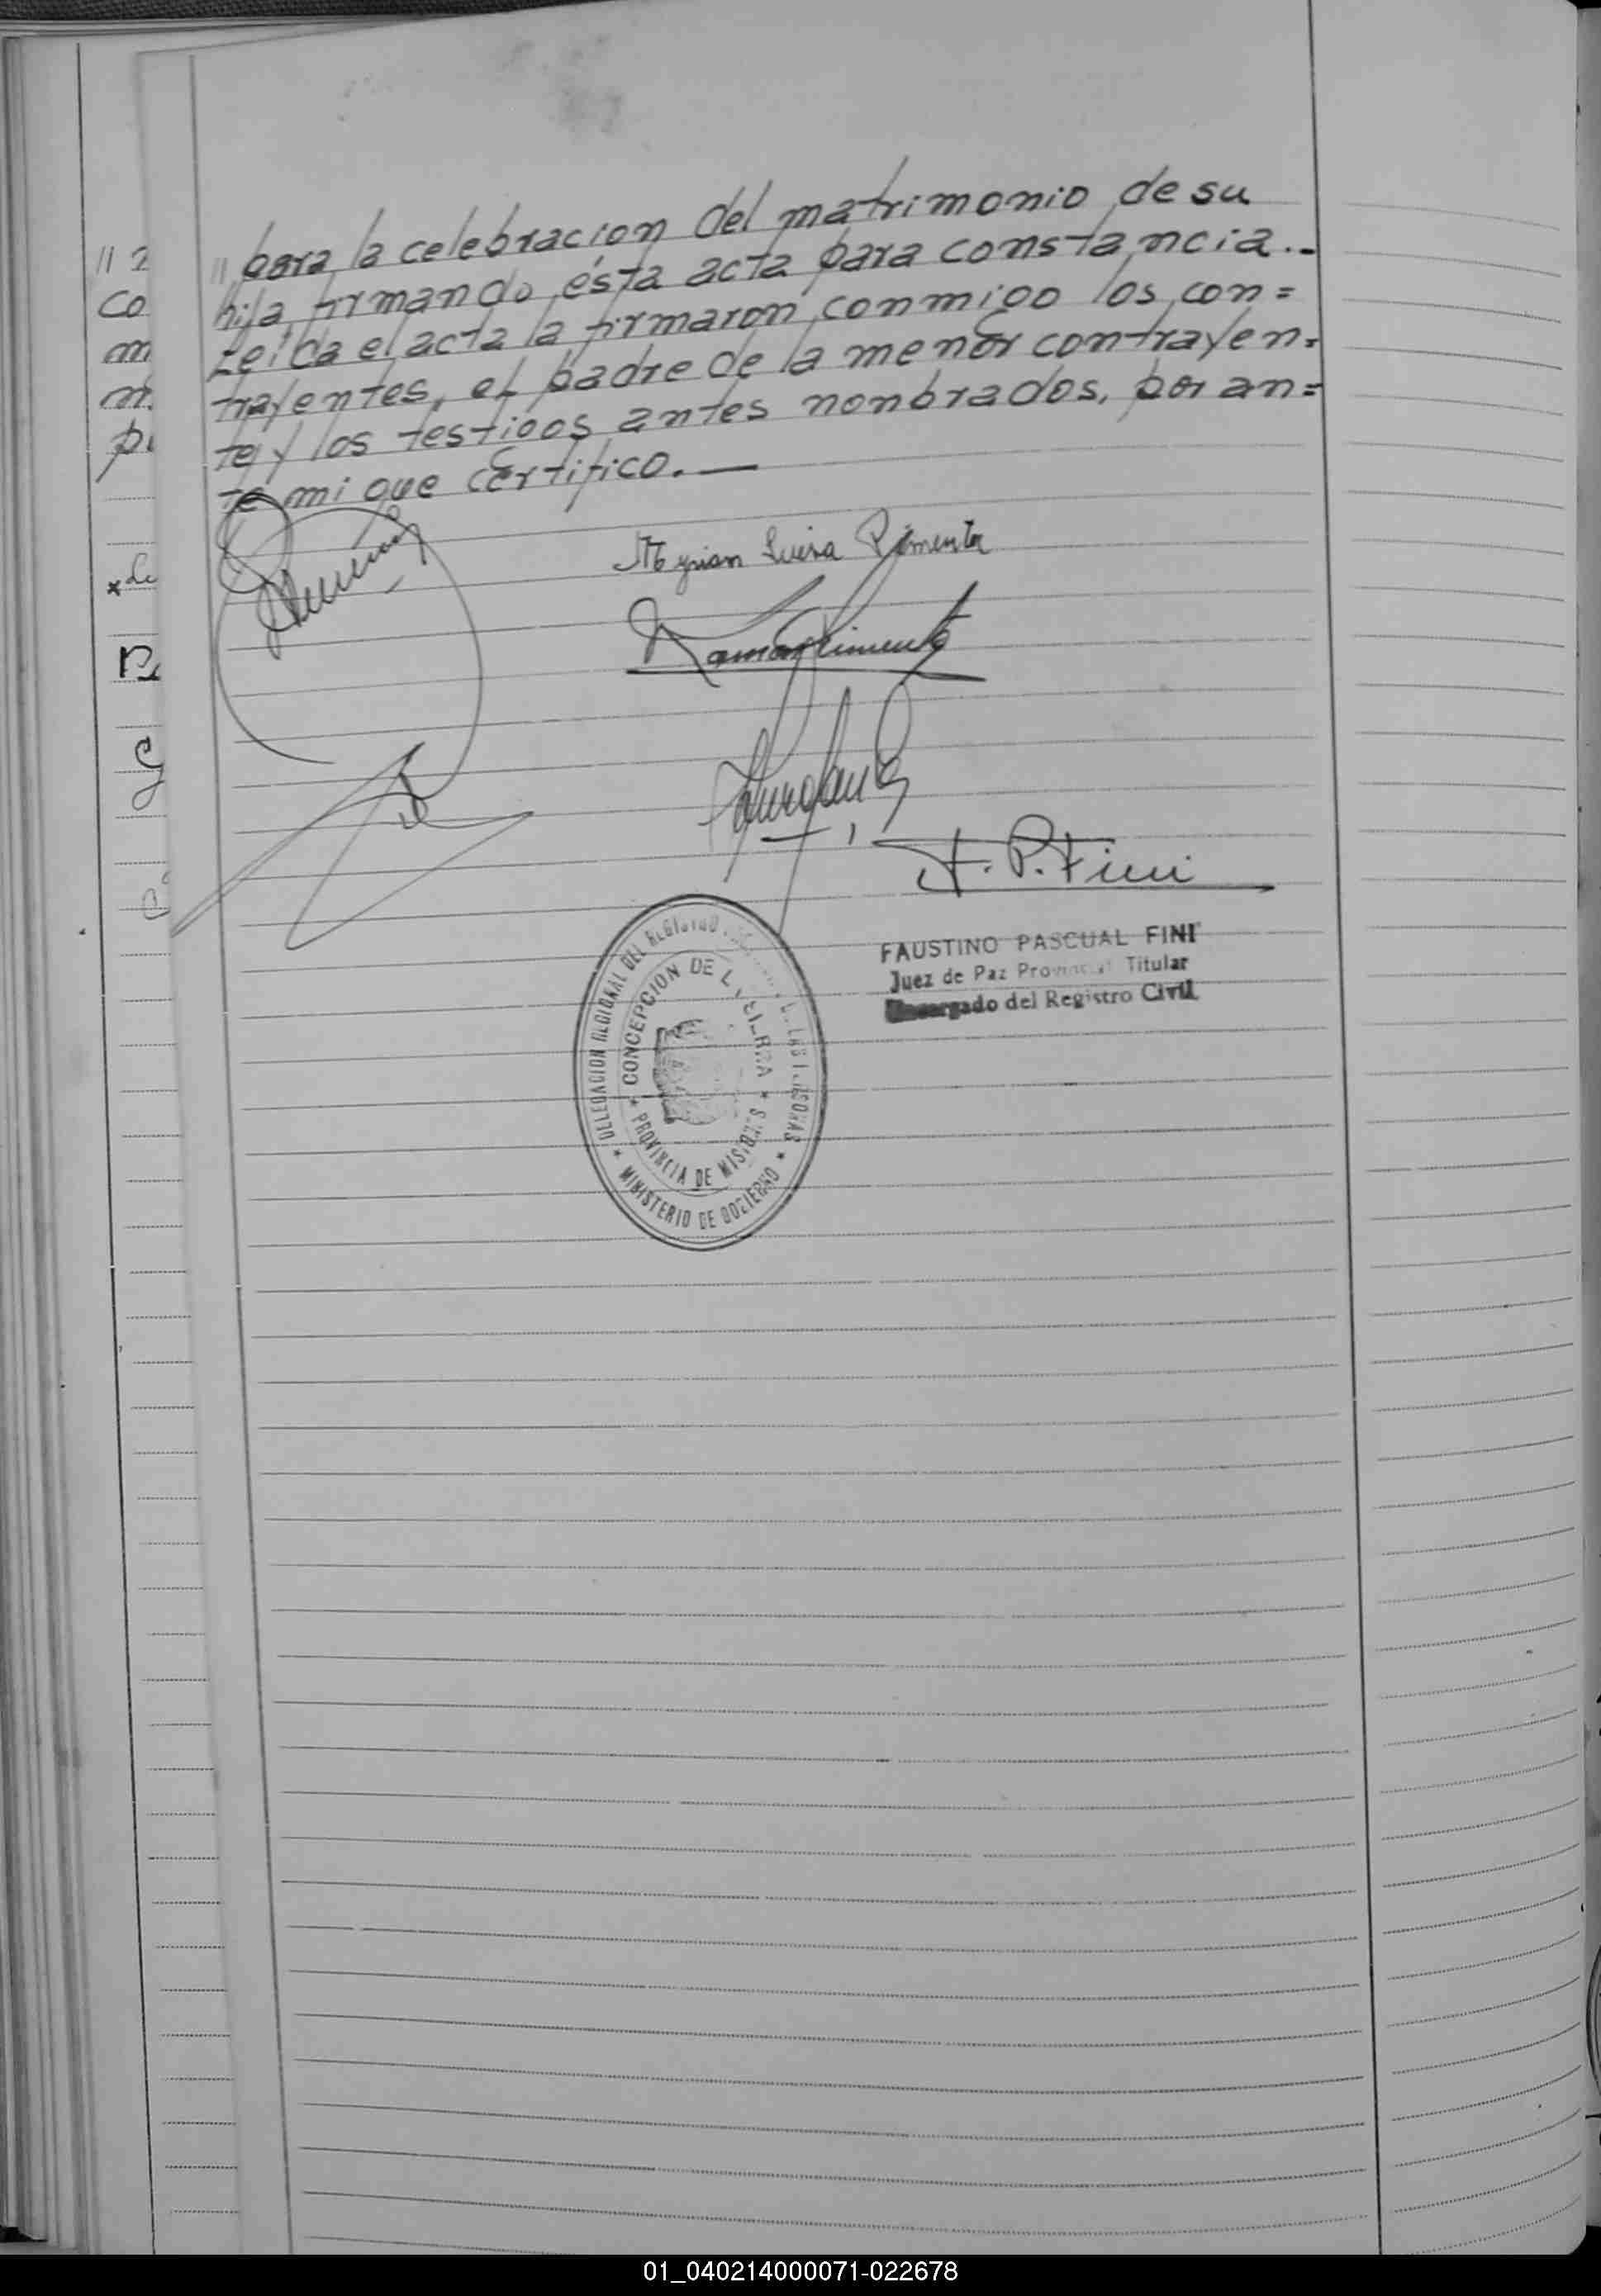 // para la celebración del matrimonio de su
hija, firmando ésta acta para constancia.-
Leída el acta la firmaron conmigo los con=
trayentes, el padre de la menor contrayen=
te y los testigos antes nombrados, por an=
te mi que certifico.—
Myrian Luisa Pimenta
Ramon Pimenta
F. P. Fini
FAUSTINO PASCUAL FINI
Juez de Paz Provincial Titular
Encargado del Registro Civil
DELEGACION REGIONAL DEL REGISTRO DE LAS PERSONAS
CONCEPCION DE LA SIERRA
PROVINCIA DE MISIONES
MINISTERIO DE GOBIERNO
// 2
co
m
p
01_040214000071-022678